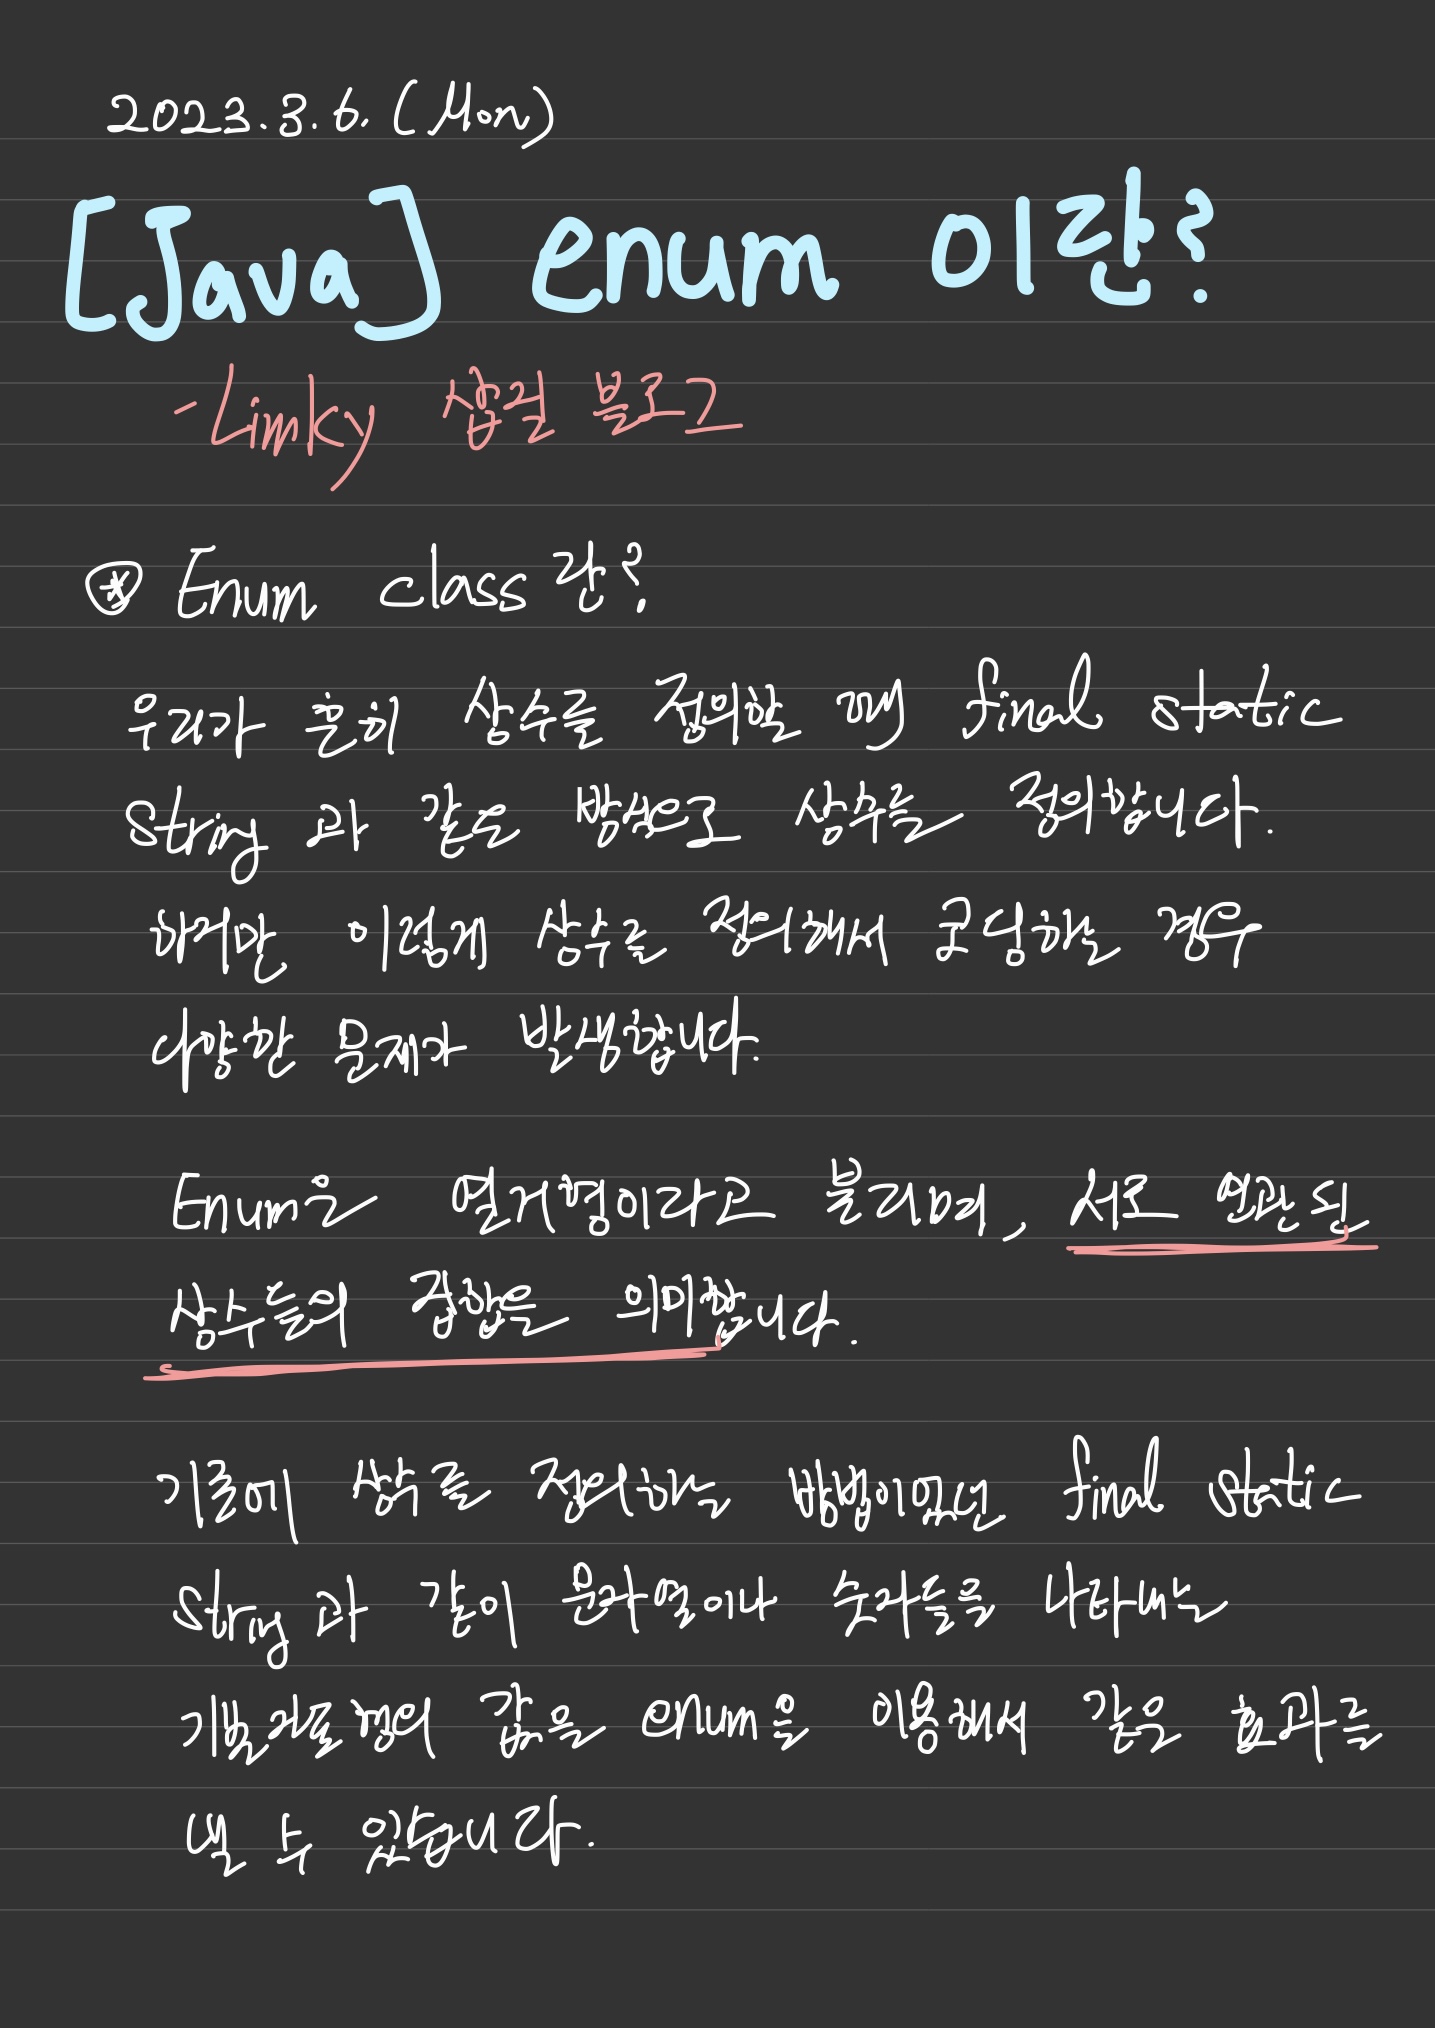 2023.3.6. (Mon)
[Java] enum 이란?
- Limky 삽질 블로그
* Enum class란?
우리가 흔히 상수를 정의할 때 final static
String 과 같은 방식으로 상수를 정의합니다.
하지만 이렇게 상수를 정의해서 코딩하는 경우
다양한 문제가 발생합니다.
Enum은 열거형이라고 불리며, 서로 연관된
상수들의 집합을 의미합니다.
기존에 상수를 정의하는 방법이었던 final static
String 과 같이 문자열이나 숫자들을 나타내는
기본자료형의 값을 enum을 이용해서 같은 효과를
낼 수 있습니다.